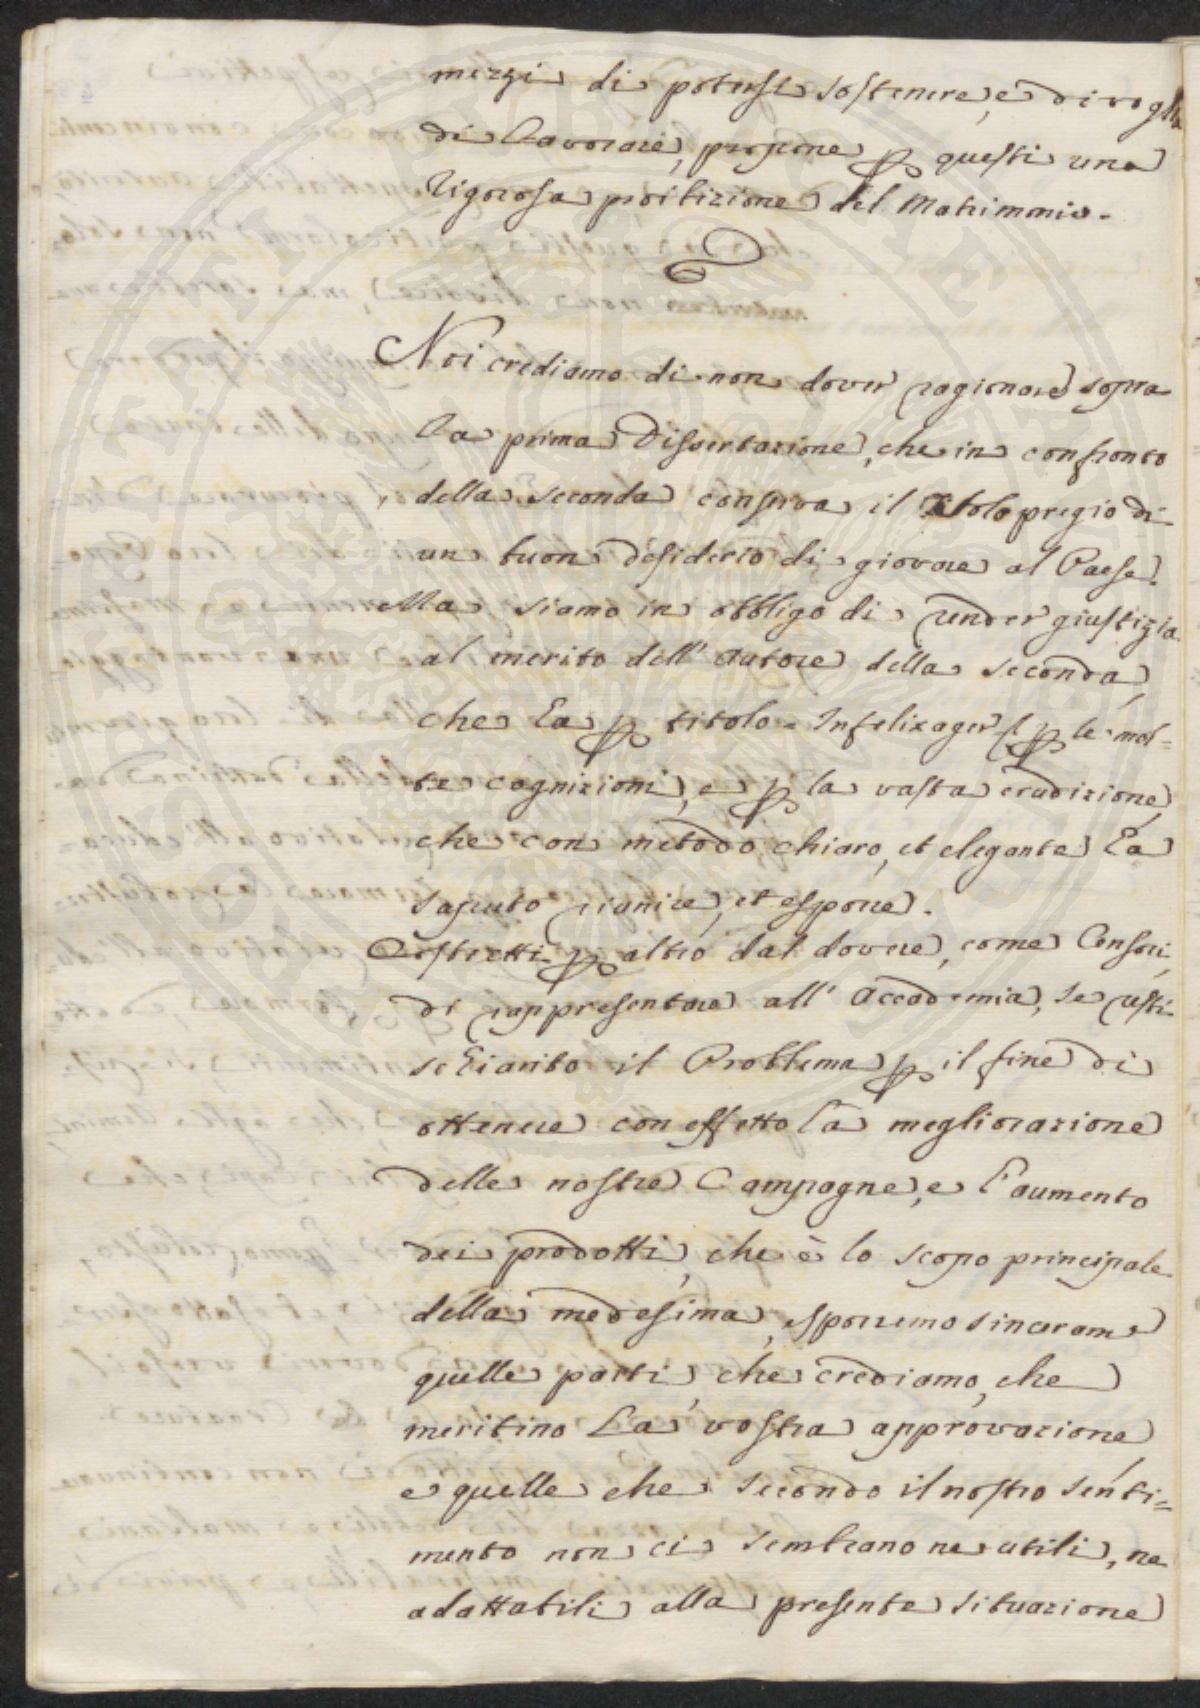 mezzi di potersi sostenere, e di voglia
di Lavorare, propone p questi una
rigorosa proibizione del Matrimonio.
Noi crediamo di non dover ragionare sopra
la prima Dissertazione, che in confronto
della seconda conserva il solo pregio di
un buon desiderio di giovare al Paese.
Ma siamo in obbligo di render giustizia
al merito dell' autore della seconda,
che ha p titolo = Infelix ager p le mol=
te cognizioni, e p la vasta erudizione,
che con metodo chiaro, et elegante ha
saputo riunire, et esporre.
Costretti p altro dal dovere, come Censori,
di rappresentare all' Accademia, se resti
schiarito il Problema p il fine di
ottenere con effetto la megliorazione
delle nostre Campagne, e l'aumento
dei prodotti, che è lo scopo principale
della medesima, esporremo sinceram.e
quelle parti, che crediamo, che
meritino la vostra approvazione
e quelle che secondo il nostro senti=
mento non ci sembrano ne utili, ne
adattabili alla presente situazione